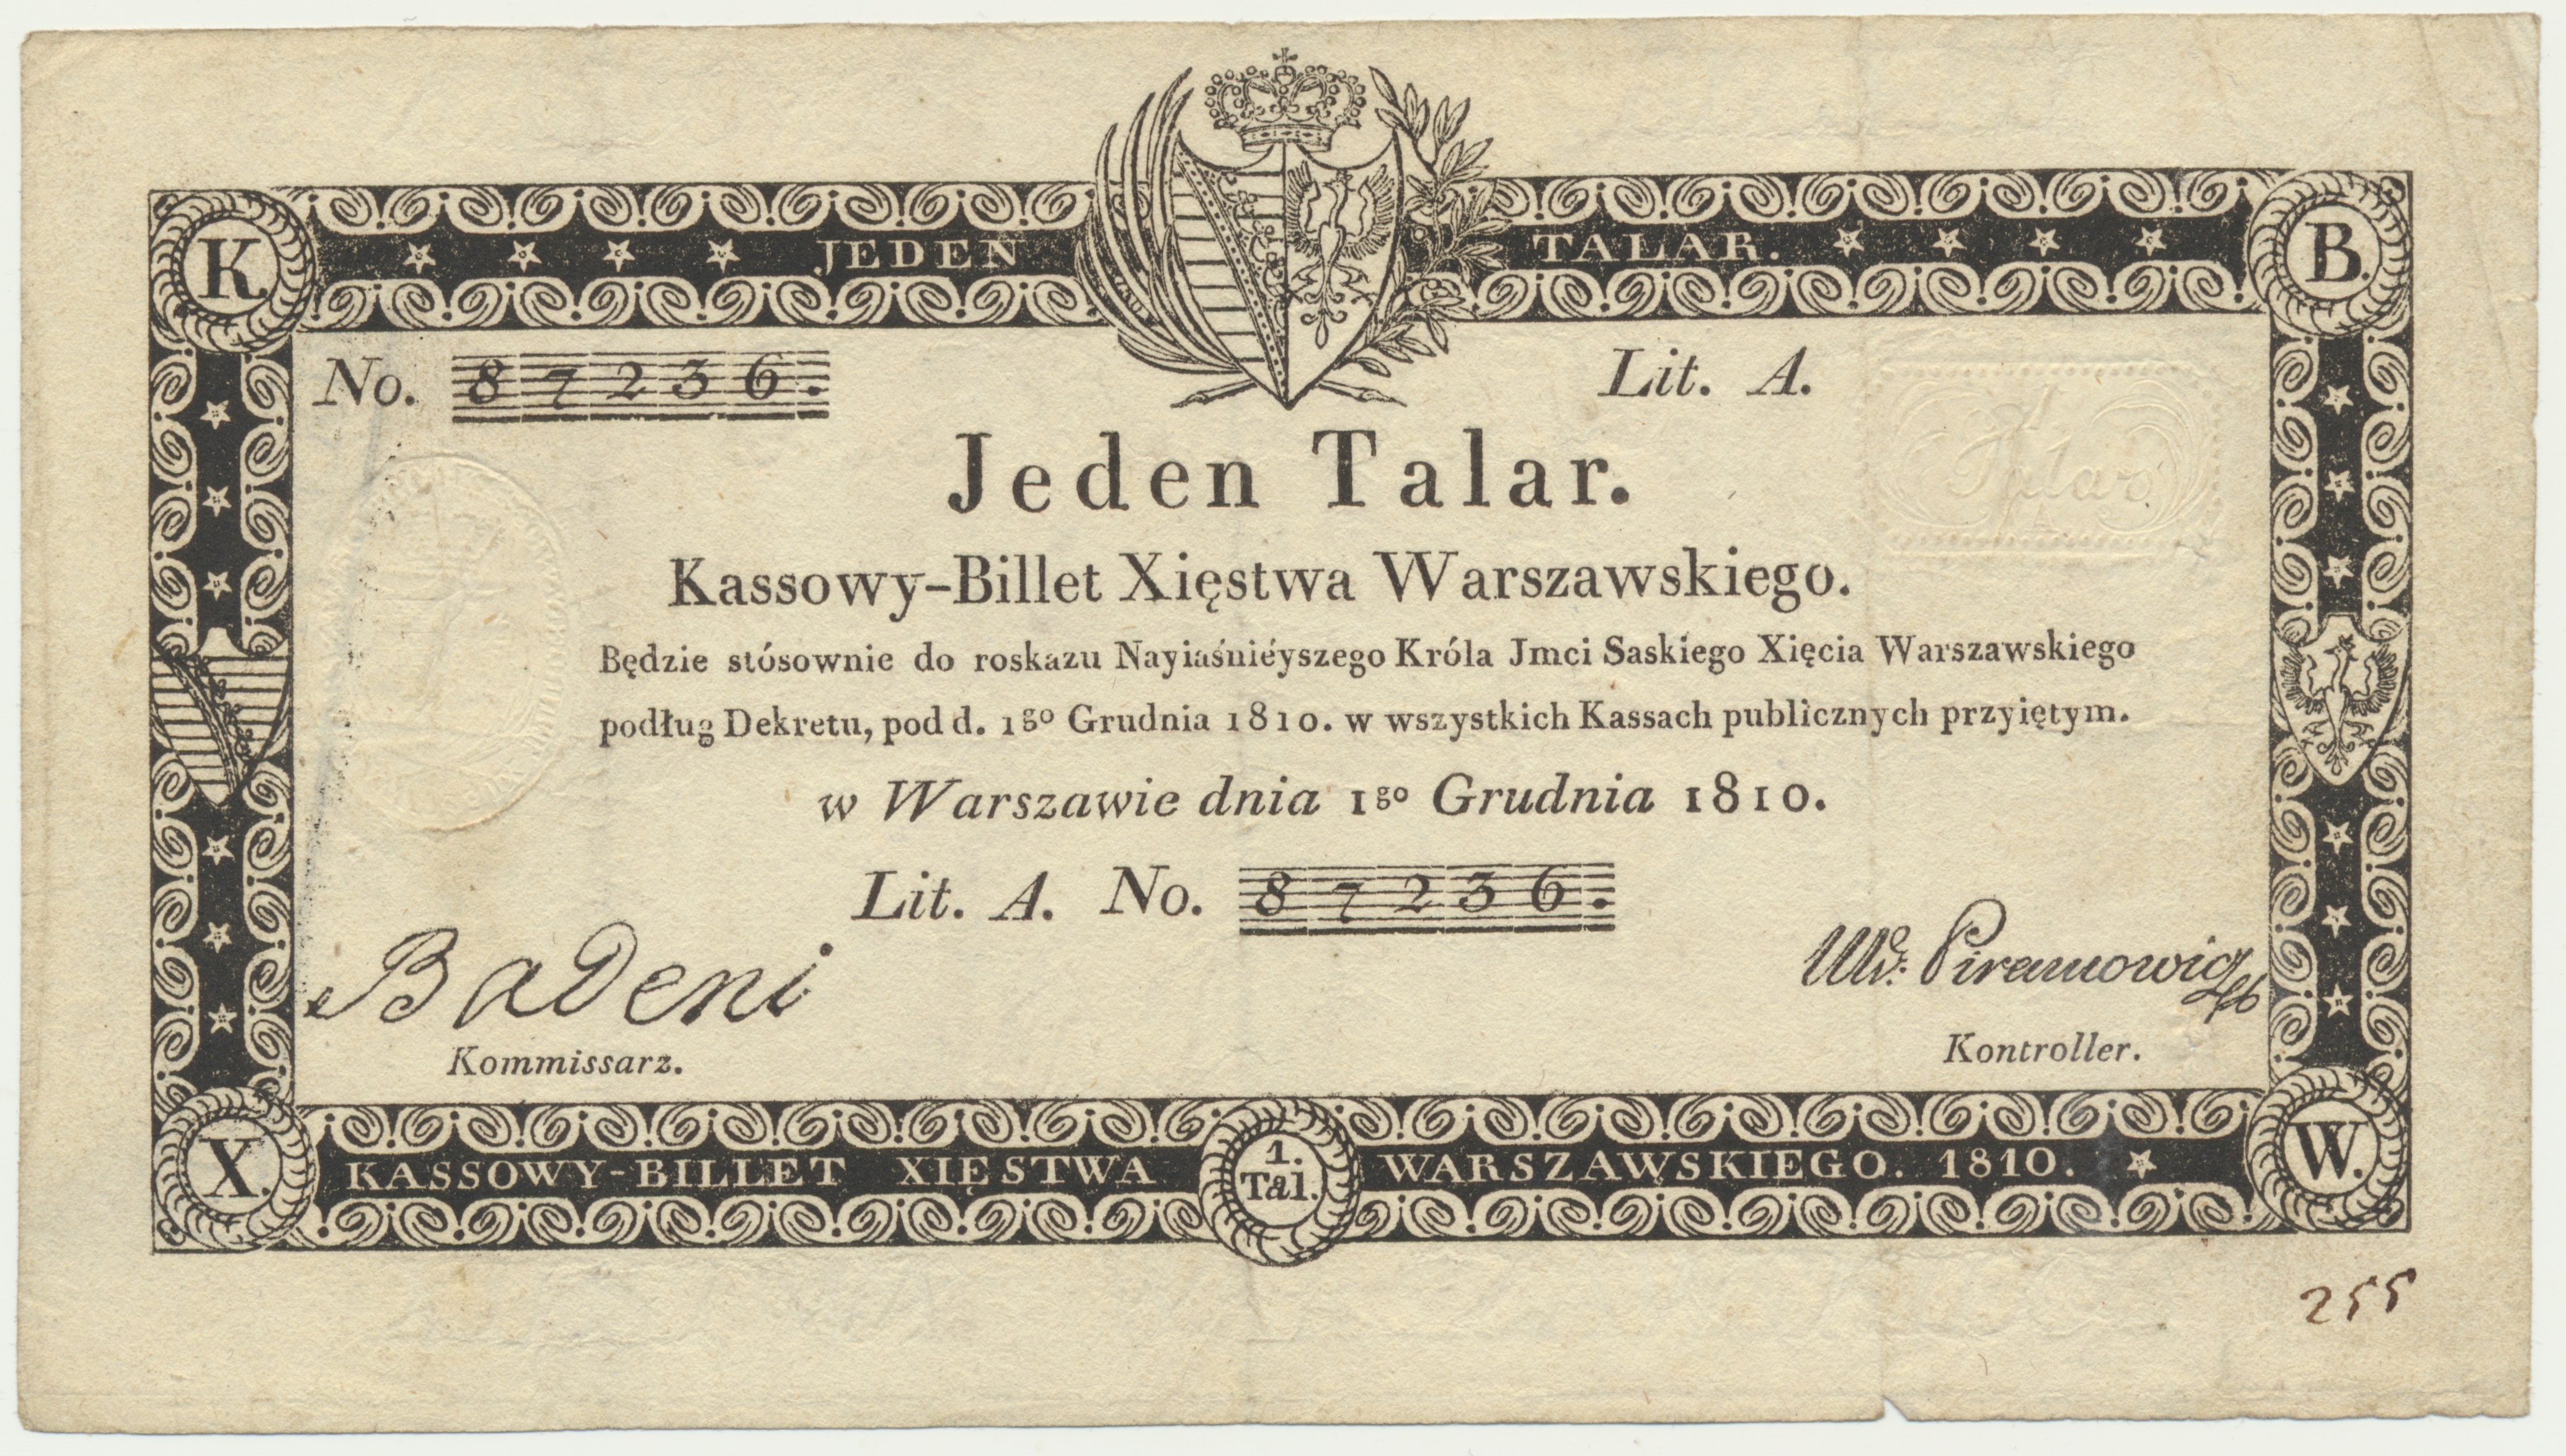 K. JEDEN TALAR. B.
No. 87236. Lit. A.
Jeden Talar.
Kassowy-Billet Xięstwa Warszawskiego.
Będzie stósownie do roskazu Nayiaśniéyszego Króla Jmci Saskiego Xięcia Warszawskiego
podług Dekretu, pod d. 1go Grudnia 1810. w wszystkich Kassach publicznych przyiętym.
w Warszawie dnia 1go Grudnia 1810.
Lit. A. No. 87236.
Badeni
Kommissarz.
Kontroller.
X. KASSOWY-BILLET XIĘSTWA 1. Tal. WARSZAWSKIEGO. 1810. W.
255